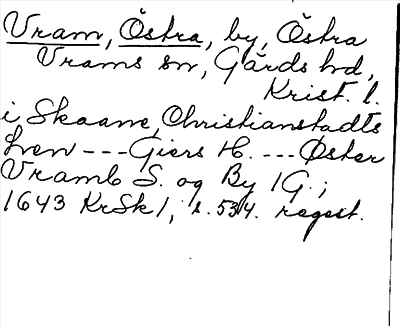 Vram, Östra, by, Östra
Vrams sn, Gärds hd,
Krist. l.
i Skaane, Christianstadts
Leen --- Giers H. --- Øster
Vramb S. og By 1 G.;
1643 KrSk 1, s. 534. regest.